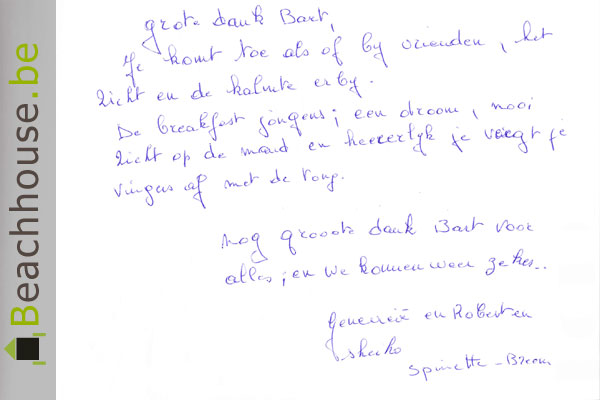 Beachhouse.be
grote dank Bart,
Je komt toe als of by vrienden, het
zicht en de kalmte erby.
De breakfast jongens; een droom, mooi
zicht op de mand en heerlyk je veegt je
vingers af met de tong.
nog grooote dank Bart voor
alles; en we komen weer zeker..
en Robert en